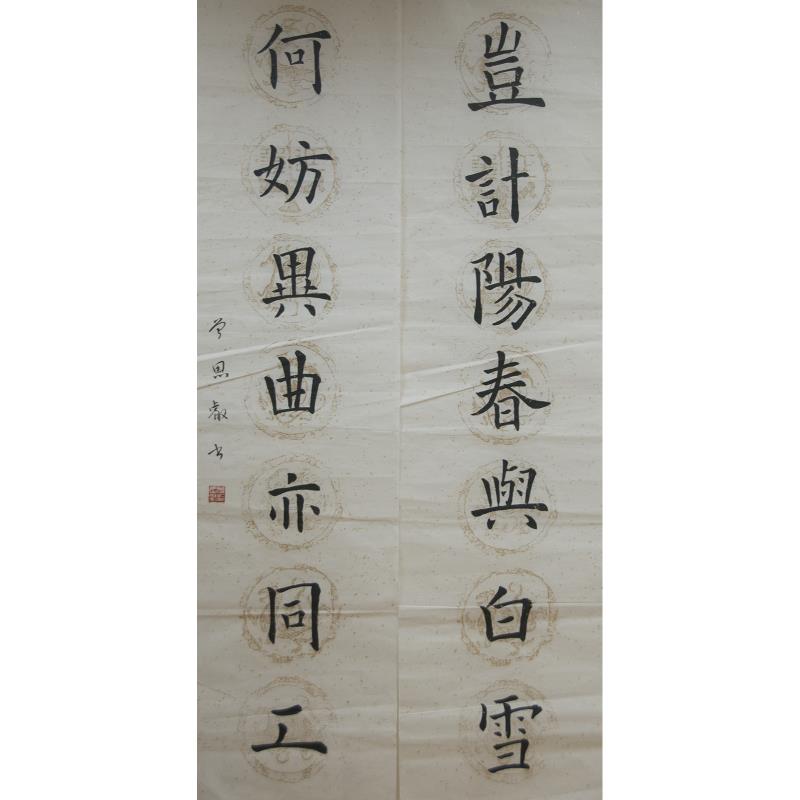 豈計陽春與白雪
何妨異曲亦同工
曾思叡书